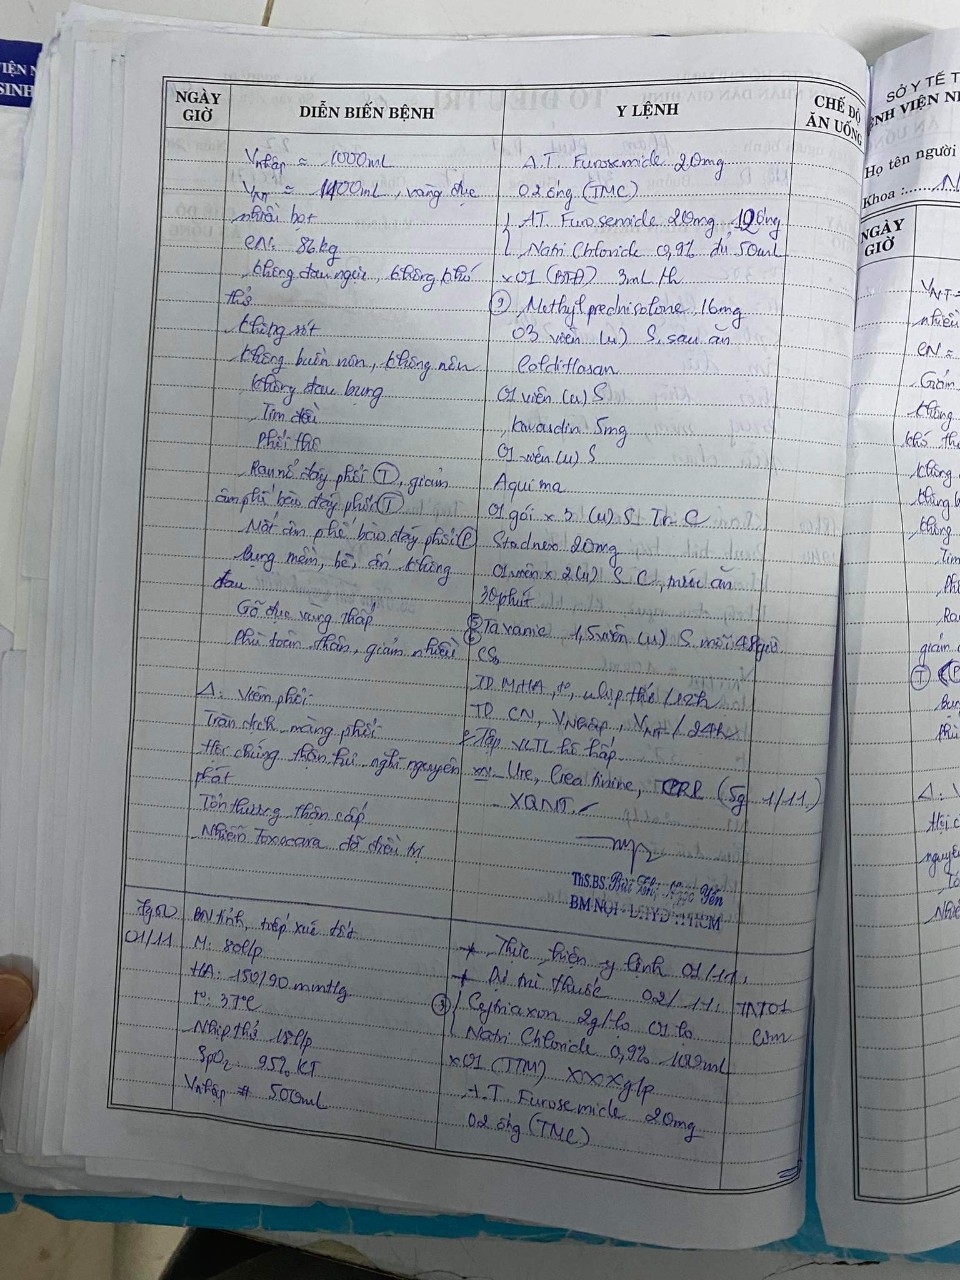 IỆN N
SINH
NGÀY GIỜ
DIỄN BIẾN BỆNH
Y LỆNH
CHẾ ĐỘ ĂN UỐNG
Vnhập ≈ 1000ml
VNT ≈ 1400ml, vàng đục
nhiều bọt
CN: 86kg
không đau ngực, không khó
thở
không sốt
không buồn nôn, không nôn
không đau bụng
Tim đều
Phổi thô
Ran nổ đáy phổi (T), giảm
âm phế bào đáy phổi (T)
Mất âm phế bào đáy phổi (P)
bụng mềm, bè, ấn không
đau
Gõ đục vùng thấp
Phù toàn thân, giảm nhiều
Δ: Viêm phổi
Tràn dịch màng phổi
Hội chứng thận hư nghi nguyên
phát
Tổn thương thận cấp
Nhiễm toxocara đã điều trị
A.T. Furosemide 20mg
02 ống (TMC)
A.T. Furosemide 20mg 12 ống
Natri Chloride 0,9% đủ 50ml
x01 (BTĐ) 3ml/h
(9) Methylprednisolone 16mg
03 viên (u) S, sau ăn
Coldiflasan
01 viên (u) S
Kavasdin 5mg
01 viên (u) S
Aquima
01 gói x 3 (u) S Tr C
Stadnex 20mg
01 viên x 2 (u) S, C, trước ăn
30 phút
Taxamic 1,5 viên (u) S mỗi 48 giờ
CS3
TD M, HA, t°, nhịp thở /12h
TD CN, Vnhập, VNT / 24h
Tập VLTL hô hấp
xn: Ure, Creatinine, CRP (5g 1/11)
XQNT
ThS.BS. Yến
BM NỘI - ĐHYD TPHCM
7g00
01/11
BN tỉnh, tiếp xúc tốt
M: 80l/p
HA: 150/90 mmHg
t°: 37°C
Nhịp thở 18l/p
SpO2 95% KT
Vnhập # 500ml
+ Thực hiện y lệnh 01/11
+ Dự trù thuốc 02/11
(3) Ceftriaxon 2g/lọ 01 lọ
Natri Chloride 0,9% 100ml
x01 (TTM) XXX g/p
A.T. Furosemide 20mg
02 ống (TMC)
TNT01
Cơm
SỞ Y TẾ T
BỆNH VIỆN NH
Họ tên người
Khoa :
NGÀY GIỜ
VNT
nhiều
CN ≈
Giảm
không
khó th
không
không b
không
Tim
Ph
Ra
giảm
(T) (P)
bụn
phù
Δ: V
Hội c
nguyê
Tổ
Nhiễ